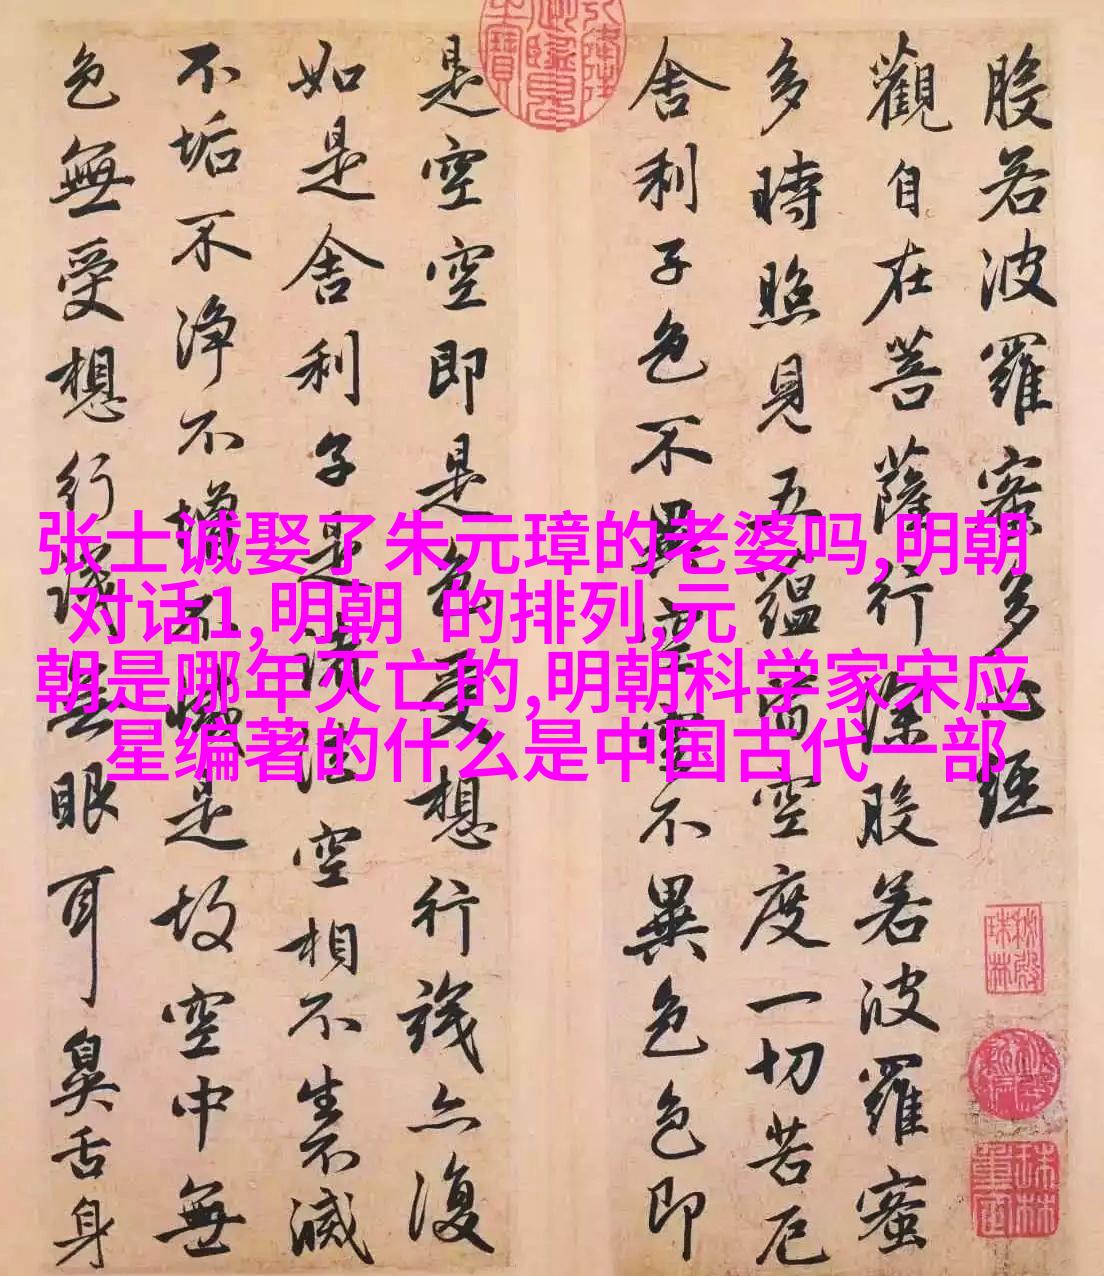 般若波羅蜜多心經
觀自在菩薩行深般若波羅蜜
多時照見五蘊皆空度一切苦厄
舍利子色不異空空不異色色即
是空空即是色受想行識亦復
如是舍利子是諸法空相不生不滅
不垢不淨不增不減是故空中無
色無受想行識無眼耳鼻舌身
张士诚娶了朱元璋的老婆吗,明朝
对话1,明朝 的排列,元
朝是哪年灭亡的,明朝科学家宋应
星编著的什么是中国古代一部